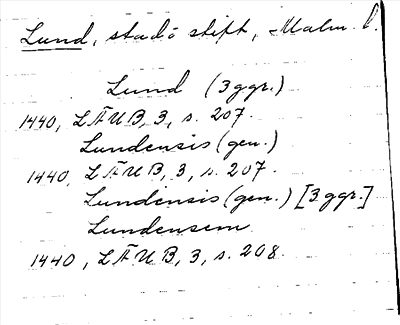 Lund, stads stift, Malm. l.
Lund (3 ggr.)
1440, LÄUB, 3, s. 207.
Lundensis (gen.)
1440, LÄUB, 3, s. 207.
Lundinsis (gen.) [3 ggr.]
Lundensem
1440, LÄUB, 3, s. 208.